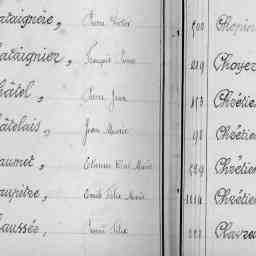 ataignère, Pierre Victor
ataignier, François Pierre
hâtel, Pierre Jean
âtelais, Jean Marie
aumet, Marie
aupitre, Emile Félix Marie
aussée, Félix
500 Chopin
219 Choyez
413 Chrétie
98 Chrétien
229 Chrétien
1114 Chrétie
222